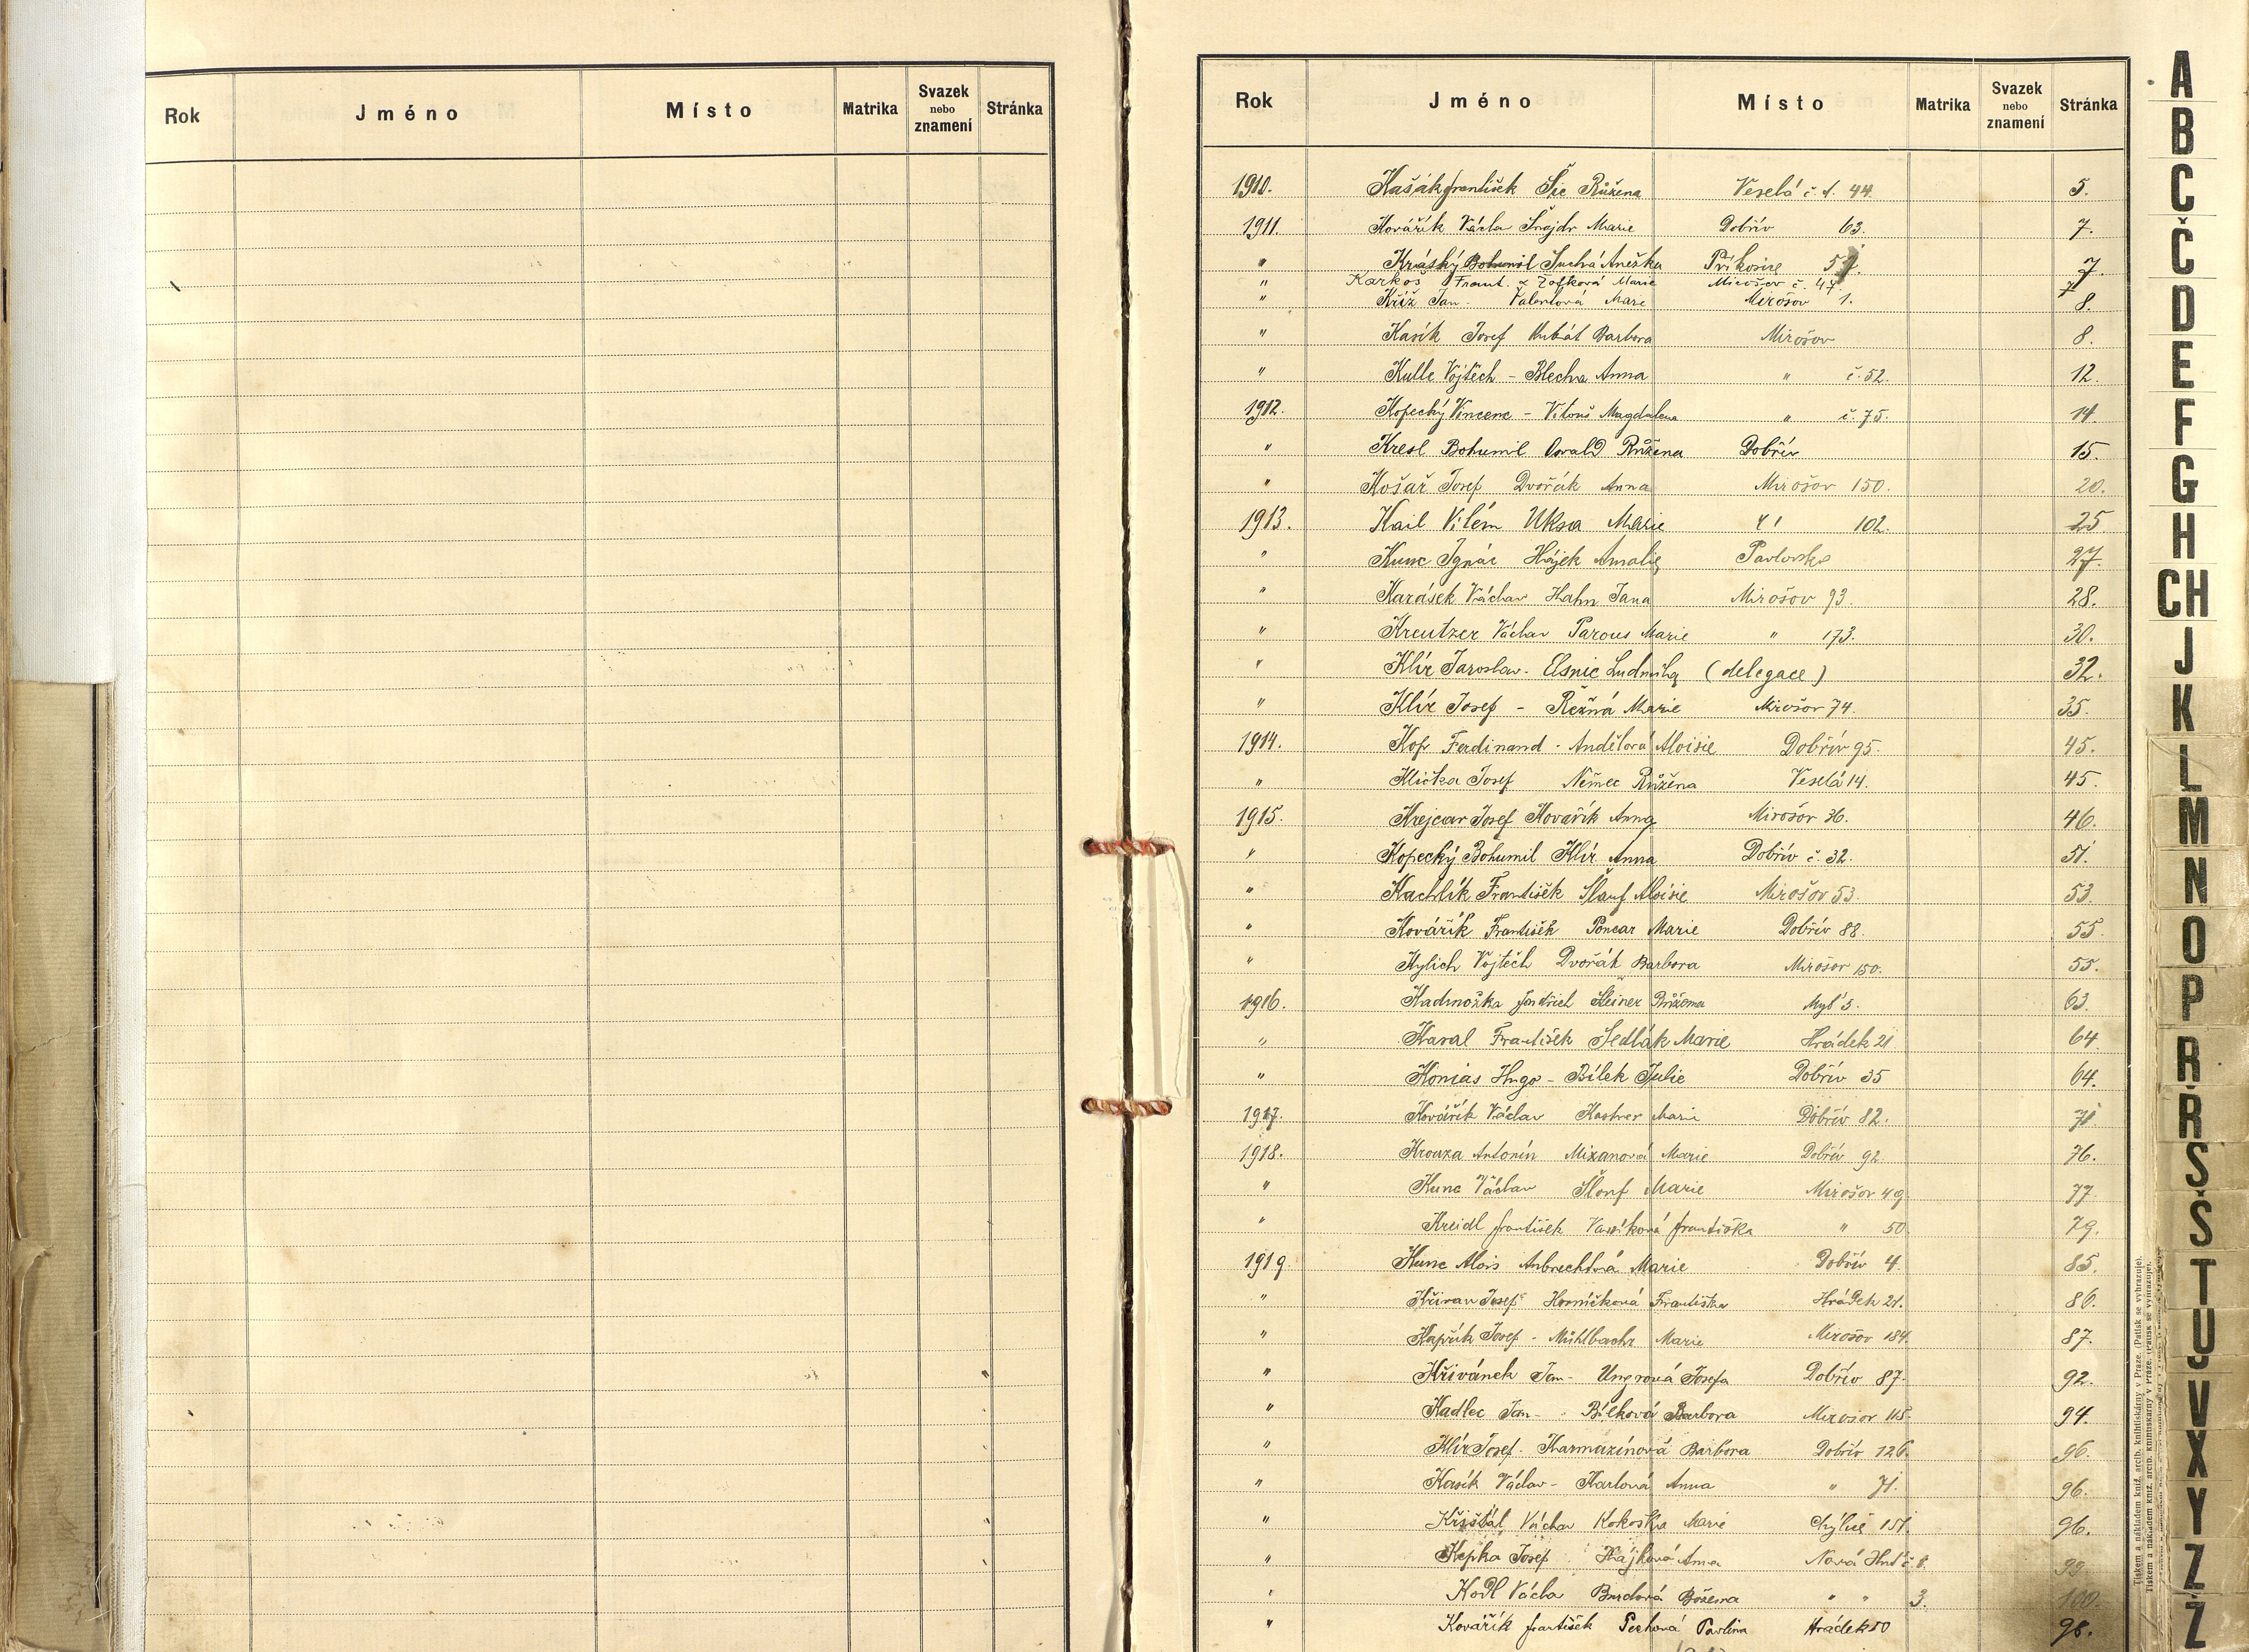 Rok Jméno Místo Matrika Svazek nebo znamení Stránka
Rok Jméno Místo Matrika Svazek nebo znamení Stránka
1910. Kašák František Šic Růžena Veselá č. 44. 5.
1911. Kovářík Václav Šnajdr Marie Dobřív 63. 7.
" Kráský Bohumil Suchá Anežka Příkosice 7.
" Karkoš Frant. Marie Mirošov č. 47. 7
" Kříž Jan Valentová Marie Mirošov 1. 8.
" Kasík Josef Barbora Mirošov 8.
" Kulle Vojtěch - Blecha Anna " č. 52. 12.
1912. Kopecký Vincenc - Vitouš Magdalena " č. 75. 14.
" Kresl Bohumil Osvald Růžena Dobřív 15.
" Košař Josef Dvořák Anna Mirošov 150. 20.
1913. Kail Vilém Uksa Marie " 102. 25
" Kunc Ignác Hájek Amalie Pavlovsko 27.
" Karásek Václav Hahn Jana Mirošov 93. 28.
" Kreutzer Václav Parous Marie " 173. 30.
" Klír Jaroslav - Elsnic Ludmila (delegace) 32.
" Klír Josef - Řežná Marie Mirošov 74. 35.
1914. Kop Ferdinand - Andělová Aloisie Dobřív 95. 45.
" Klička Josef Němec Růžena Veselá 14. 45.
1915. Krejcar Josef Kovářík Anna Mirošov 36. 46.
" Kopecký Bohumil Klír Anna Dobřív č. 32. 51.
" Kachlík František Šlauf Aloisie Mirošov 53. 53.
" Kovářík František Poncar Marie Dobřív 88. 55.
" Kylich Vojtěch Dvořák Barbora Mirošov 150. 55.
1916. Kadnožka Jindřich Steiner Růžena Myť 3. 63.
" Karal František Sedlák Marie Hrádek 21 64.
" Konias Hugo - Bílek Julie Dobřív 35 64.
1917. Kovářík Václav Kastner Marie Dobřív 82. 71
1918. Krouza Antonín Mixanová Marie Dobřív 92. 76.
" Kunc Václav Šlouf Marie Mirošov 49. 77.
" Kreidl František Vasíková Františka " 50. 79.
1919. Kunc Alois Anbrechtová Marie Dobřív 4. 85.
" Křivan Josef Horníčková Františka Hrádek 21. 86.
" Kapřík Josef - Mühlbachr Marie Mirošov 184. 87.
" Křivánek Jan - Ungrová Josefa Dobřív 87. 92.
" Kadlec Jan - Bílková Barbora Mirošov 115. 94.
" Klír Josef - Karmazínová Barbora Dobřív 126. 96.
" Kasík Václav - Karlová Anna " 71. 96.
" Křišťál Václav Kokoška Marie 151. 96.
" Kepka Josef Hájková Anna Nová Huť č. 8. 99.
" Kodl Václav Burdová Božena " " 3. 100.
" Kovářík František Pechová Pavlina Hrádek 50 98.
A
B
C
Č
D
E
F
G
H
CH
J
K
L
M
N
O
P
R
Ř
S
Š
T
U
V
X
Y
Z
Ž
Tiskem a nákladem kniž. arcib. knihtiskárny v Praze. (Patisk se vyhrazuje).
Tiskem a nákladem kniž. arcib. knihtiskárny v Praze. (Patisk se vyhrazuje).